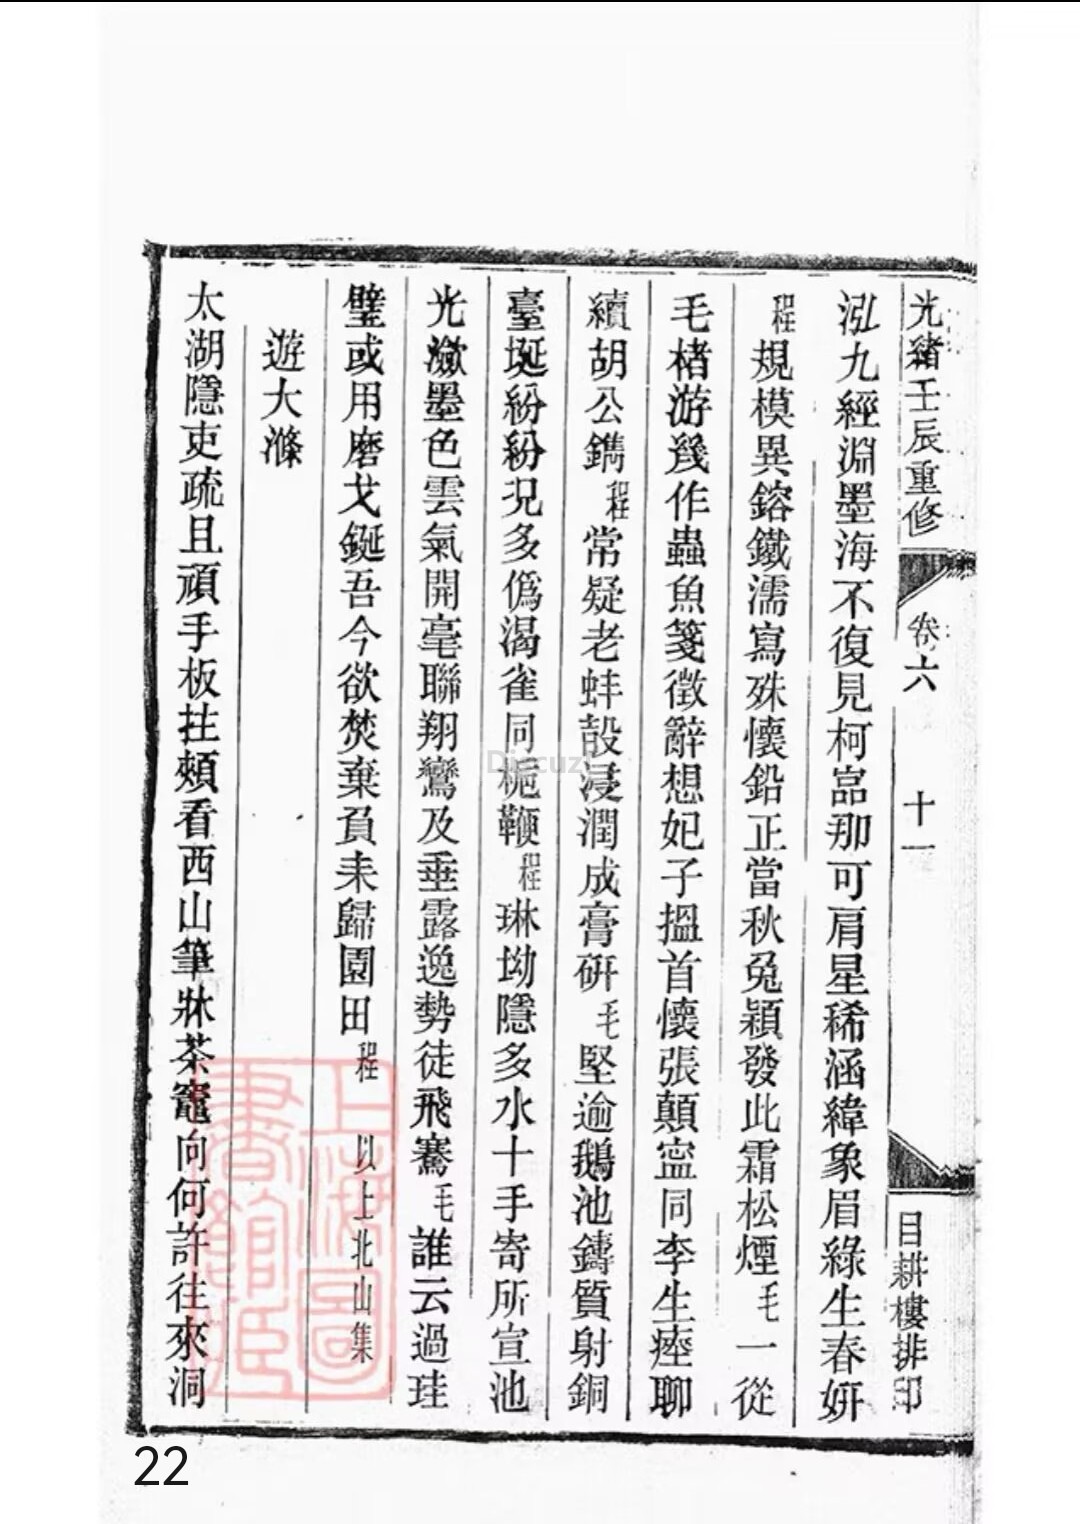 光緒壬辰重修 卷六 十一 目耕樓排印
泓九經淵墨海不復見柯嵓那可肩星稀涵緯象眉綠生春妍
程規模異鎔鐵濡寫殊懷鉛正當秋兔穎發此霜松煙毛一從
毛楮游幾作蟲魚箋徵辭想妃子搵首懷張顛寍同李生瘞聊
續胡公鐫程常疑老蚌㱿浸潤成膏硏毛堅逾鵝池鑄質射銅
臺埏紛紛況多僞渴雀同梔鞭程琳坳隱多水十手寄所宣池
光瀲墨色雲氣開毫聯翔鸞及垂露逸勢徒飛騫毛誰云過珪
璧或用磨戈鋋吾今欲焚棄負耒歸園田程 以上北山集
遊大滌
太湖隱吏疏且頑手板拄頰看西山筆牀茶竈向何許往來洞
上海圖書館藏
Discuz!
22